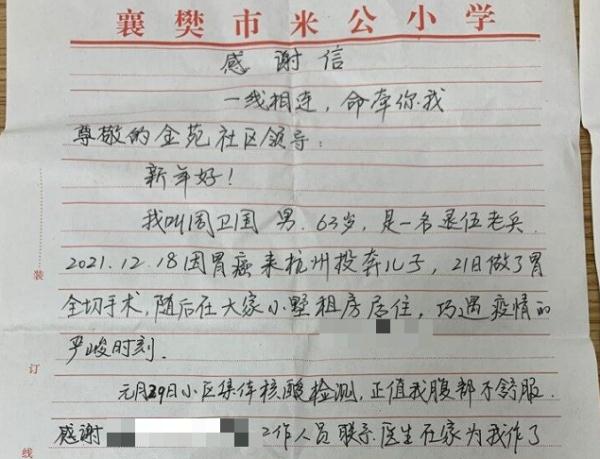 襄樊市米公小学
感谢信
一线相连，命牵你我
尊敬的金苑社区领导：
新年好！
我叫周卫国 男.63岁，是一名退伍老兵.
2021.12.18因胃癌来杭州投奔儿子，21日做了胃
全切手术，随后在大家小墅租房居住，巧遇疫情的
严峻时刻.
元月29日小区集体核酸检测，正值我腹部不舒服.
感谢
工作人员联系医生在家为我作了
装
订
线